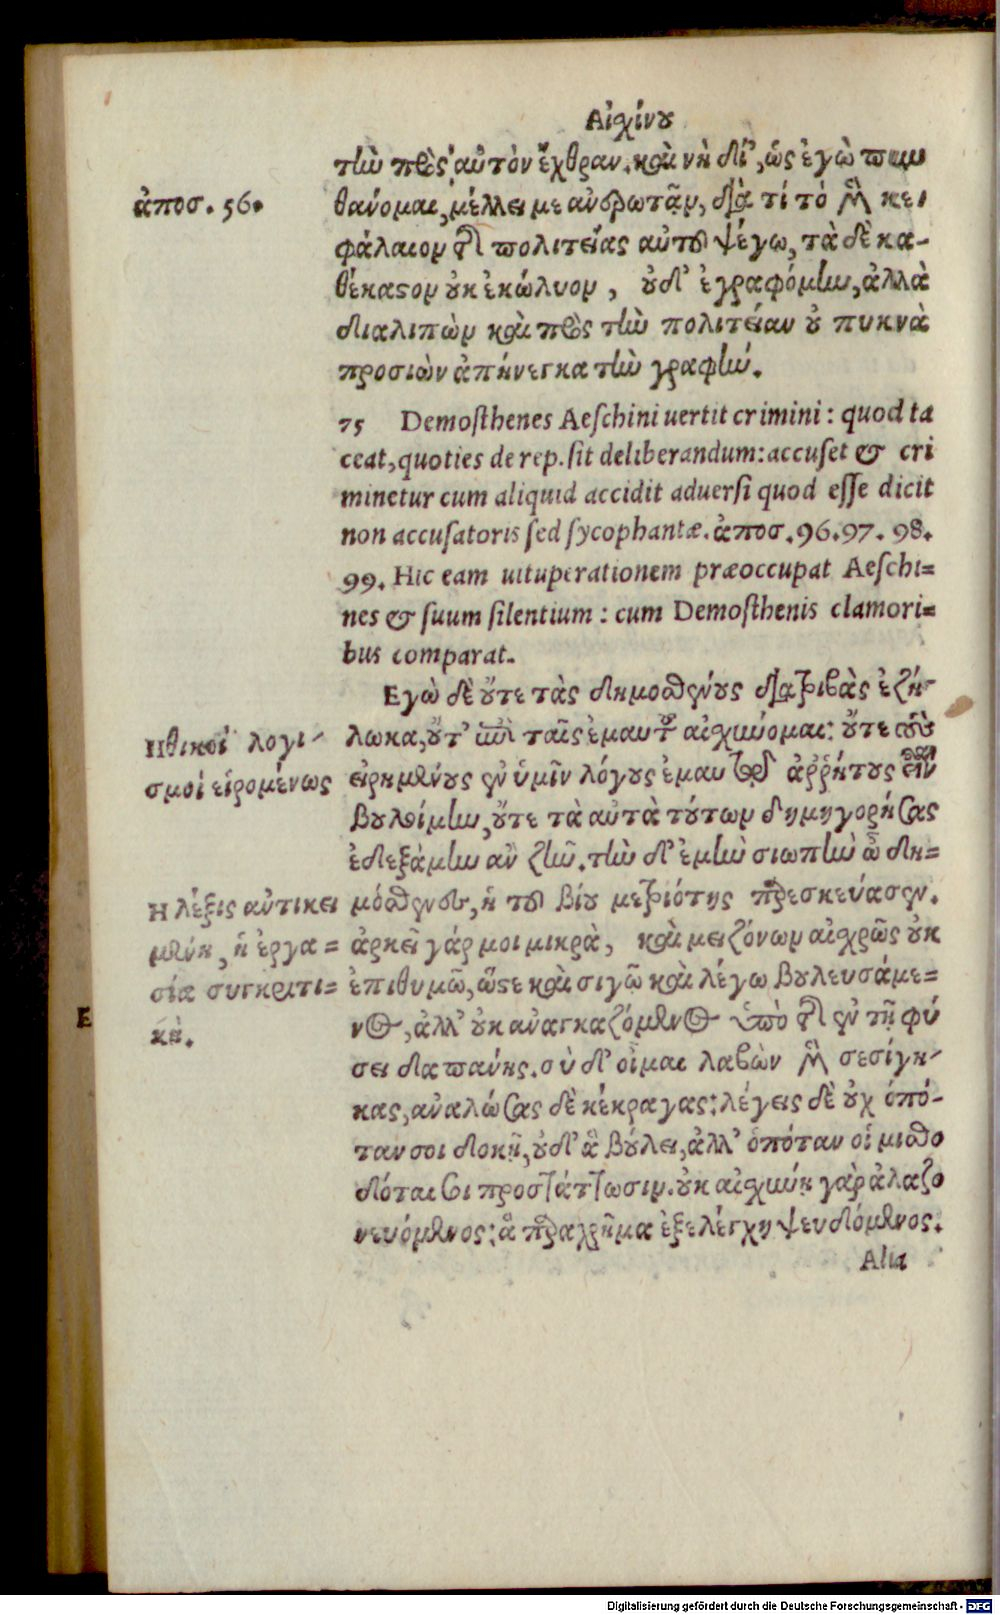 Αἰσχίνου
τὴν πρὸς αὐτὸν ἔχθραν. καὶ νὴ δί', ὡς ἐγὼ πυν
ἀποσ. 56.
θάνομαι, μέλλει με ἀνερωτᾷν, διὰ τί τὸ μὲν κε-
φάλαιον τῆς πολιτείας αὐτοῦ ψέγω, τὰ δὲ κα-
θέκαστον οὐκ ἐκώλυον, οὐδ' ἐγραφόμην, ἀλλὰ
διαλιπὼν καὶ πρὸς τὴν πολιτείαν οὐ πυκνὰ
προσιὼν ἀπήνεγκα τὴν γραφήν.
75 Demoſthenes Aeſchini uertit crimini: quod ta
ceat, quoties de rep. ſit deliberandum: accuſet & cri
minetur cum aliquid accidit aduerſi quod eſſe dicit
non accuſatoris ſed ſycophantæ. ἀποσ. 96. 97. 98.
99. Hic eam uituperationem præoccupat Aeſchi=
nes & ſuum ſilentium: cum Demoſthenis clamori=
bus comparat.
Εγὼ δὲ οὔτε τὰς δημοσθένους διατριβὰς ἐζή-
Ηθικοὶ λογι-
λωκα, οὔτ' ἐπὶ ταῖς ἐμαυτοῦ αἰσχύνομαι: οὔτε τοὺς
σμοὶ εἰρομένως
εἰρημένους ἐν ὑμῖν λόγους ἐμαυτῷ ἀῤῥήτους εἶναι
βουλοίμην, οὔτε τὰ αὐτὰ τούτων δημηγορήσας
ἐδεξάμην ἂν ζῆν. τὴν δ' ἐμὴν σιωπὴν ὦ δη=
Η λέξις ἀντικει
μόσθενες, ἡ τοῦ βίου μετριότης παρεσκεύασεν.
μένη, ἡ ἐργα=
ἀρκεῖ γάρ μοι μικρὰ, καὶ μειζόνων αἰσχρῶς οὐκ
σία συγκριτι=
ἐπιθυμῶ, ὥστε καὶ σιγῶ καὶ λέγω βουλευσάμε=
κὴ.
νος, ἀλλ' οὐκ ἀναγκαζόμενος ὑπὸ τῆς ἐν τῇ φύ
σει δαπάνης. σὺ δ' οἶμαι λαβὼν μὲν σεσίγη-
κας, ἀναλώσας δὲ κέκραγας: λέγεις δὲ οὐχ ὁπό-
ταν σοι δοκῇ, οὐδ' ἃ βούλει, ἀλλ' ὁπόταν οἱ μισθο
δόται σοι προστάττωσιν. οὐκ αἰσχύνῃ γὰρ ἀλαζο
νευόμενος: ἃ παραχρῆμα ἐξελέγχῃ ψευδόμενος.
Alia
E
Digitalisierung gefördert durch die Deutsche Forschungsgemeinschaft - DFG